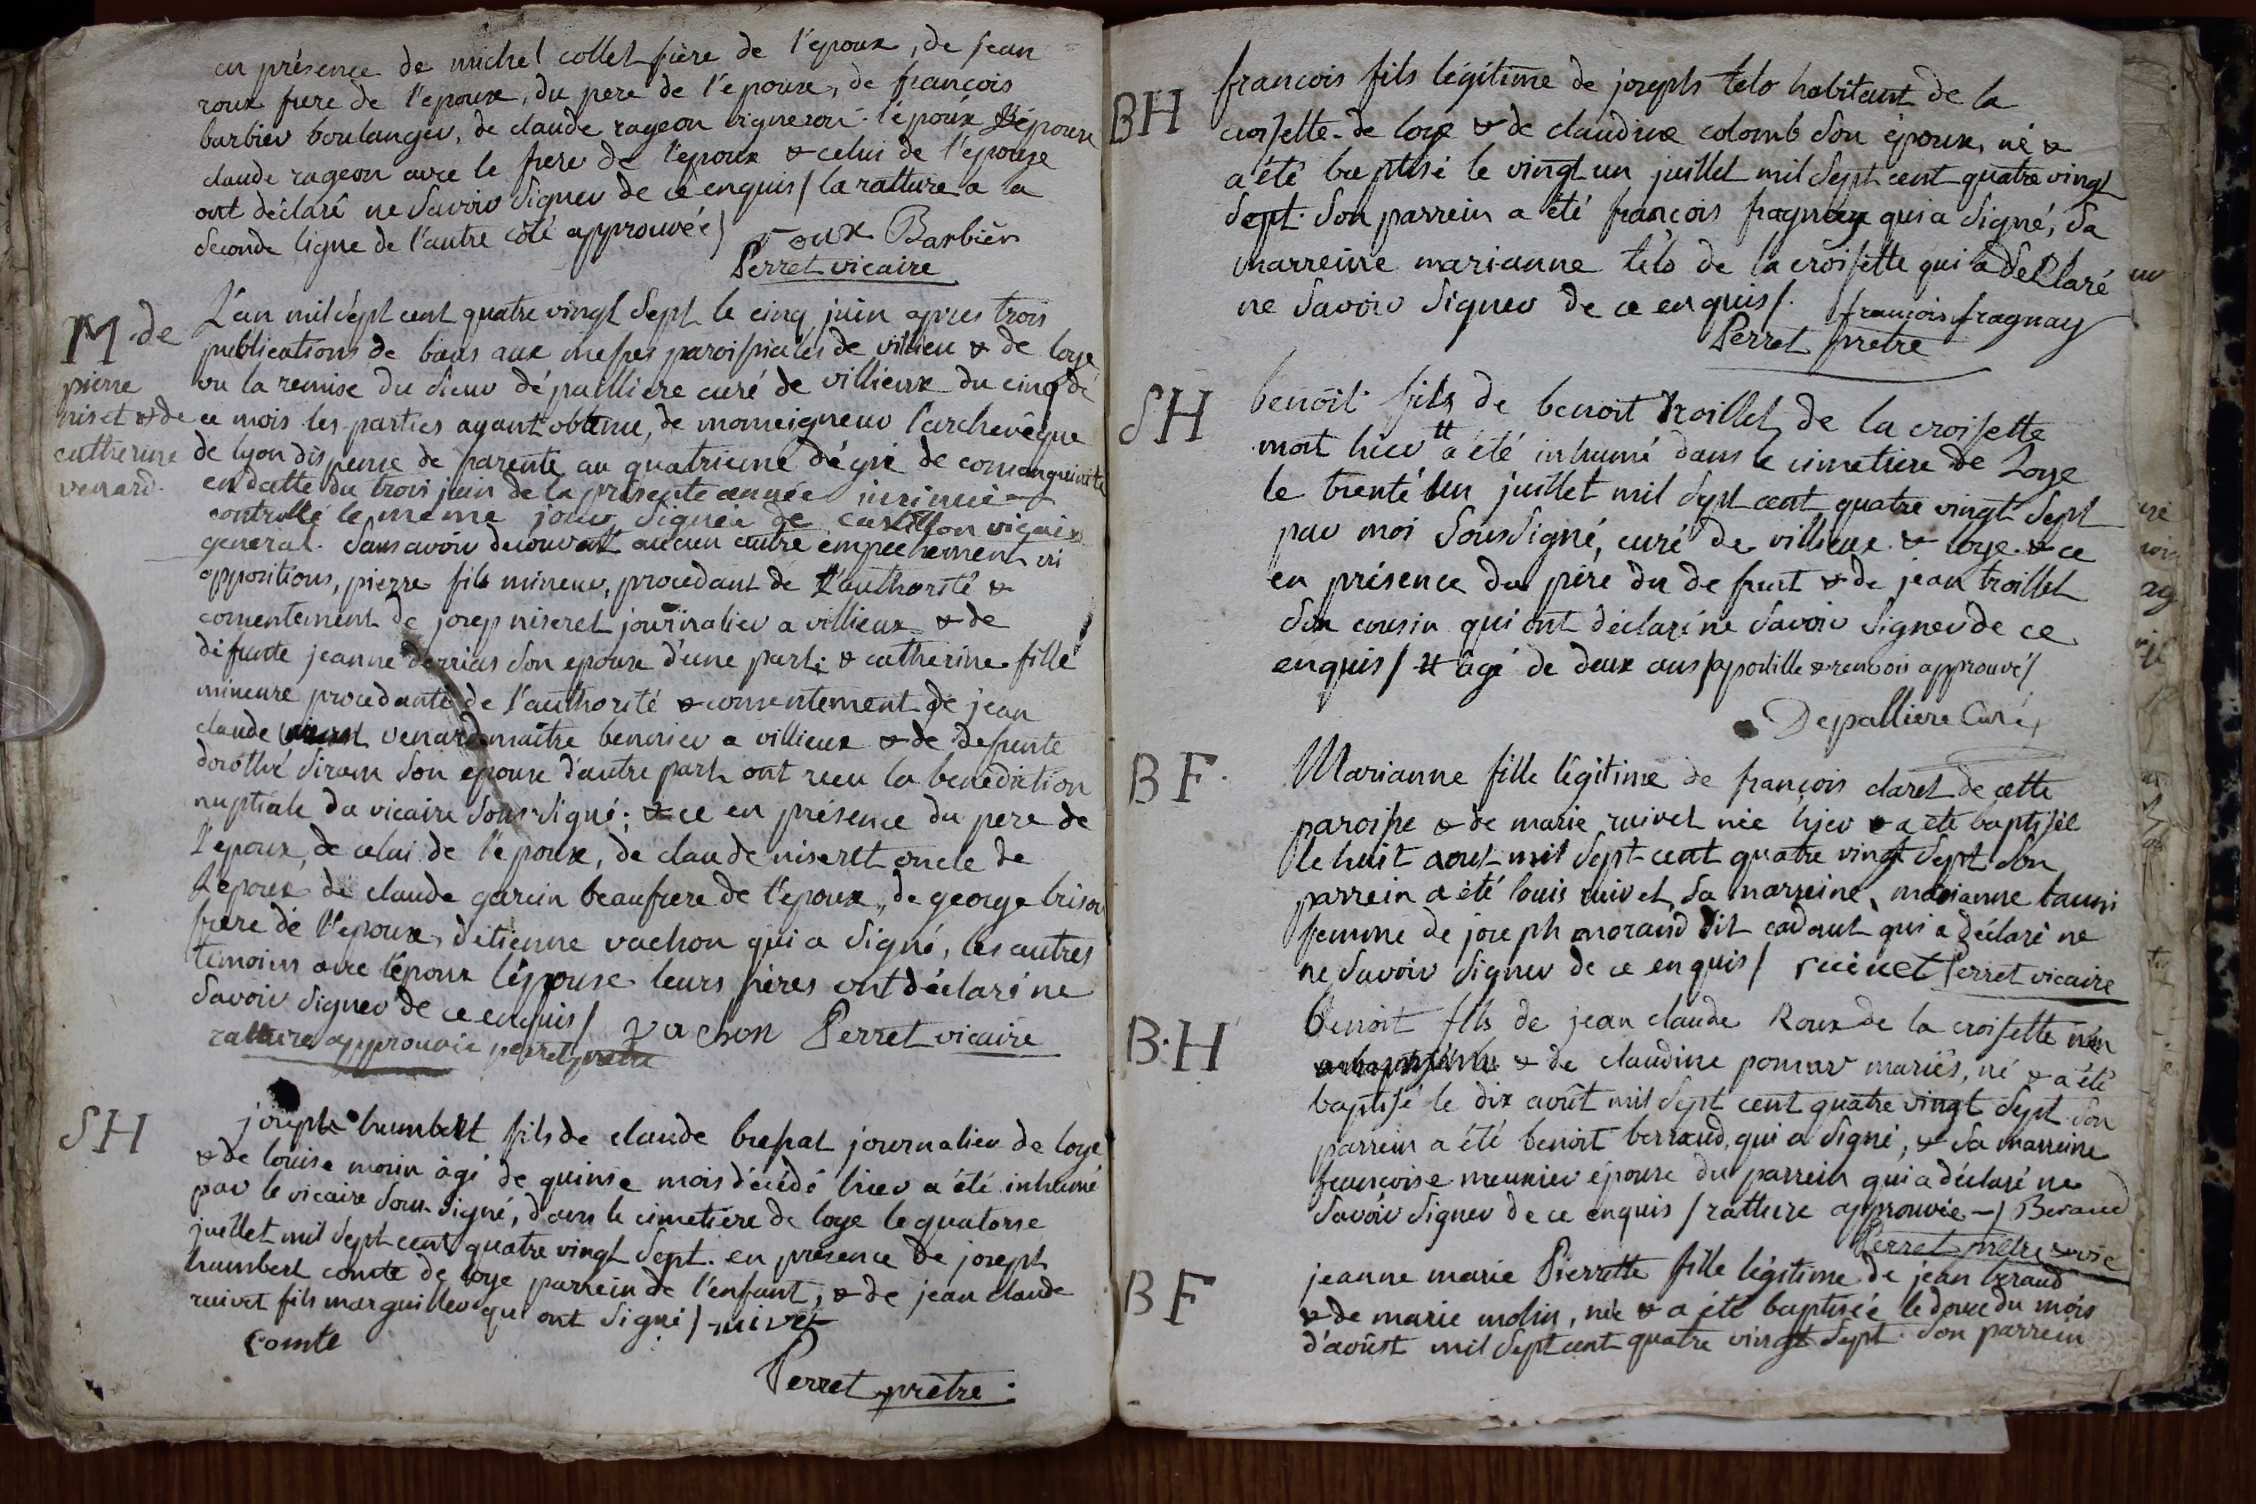 en présence de michel collet frère de l'epoux, de jean
roux frere de l'epouse, du pere de l'épouse, de françois
barbier boulanger, de claude rageon vigneron. l'époux l'épouse
claude rageon avec le frere de l'epoux & celui de l'epouse
ont déclaré ne savoir signer de ce enquis / la ratture a la
seconde ligne de l'autre côté approuvée /
roux Barbier
Perret vicaire
M. de
pierre
niset & de
catherine
venard.
L'an mil sept cent quatre vingt sept le cinq juin apres trois
publications de bans aux messes paroissiales de villieu & de loye
vu la remise du sieur dépalliere curé de villieux du cinq de
ce mois les parties ayant obtenu, de monseigneur l'archevêque
de lyon dispense de parenté au quatrieme dégré de consanguinité
en datte du trois juin de la présente année insinué &
controllé le meme jour, signée de castillon vicaire
general. sans avoir decouvert aucun autre empechement ni
oppositions, pierre fils mineur, procedant de l'authorité &
consentement de josep niseret journalier a villieux & de
difunte jeanne derrias son epouse d'une part; & catherine fille
mineure procedante de l'authorité & consentement de jean
claude venard maitre bennier a villieux & de defunte
dorothé siram son epouse d'autre part ont recu la benediction
nuptiale du vicaire soussigné; & ce en présence du pere de
l'epoux, de celui de l'epouse, de claude niseret oncle de
l'epoux de claude garin beaufrere de l'epoux, de george brison
frere de l'epouse, d'etienne vachon qui a signé, les autres
temoins avec l'époux l'épouse leurs pères ont déclaré ne
savoir signer de ce enquis / vachon Perret vicaire
ratture approuvée perret prêtre
SH
joseph humbert fils de claude bressat journalier de loye
& de louise morin âgé de quinse mois décédé hier a été inhumé
par le vicaire sous-signé, dans le cimetiere de loye le quatorse
juillet mil sept cent quatre vingt sept. en présence de joseph
humbert comte de loye parrein de l'enfant, & de jean claude
ruivet fils marguillier qui ont signé / ruivet
comte
Perret prêtre.
BH
francois fils légitime de joseph telo habitant de la
croisette de loye & de claudine colomb son épouse, né &
a été baptisé le vingt un juillet mil sept cent quatre vingt
sept. son parrein a été françois fragnay qui a signé, sa
marreine marianne télo de la croisette qui a déclaré
ne savoir signer de ce enquis /. françois fragnay
Perret prêtre
SH
benoit fils de benoit troillet de la croisette
mort hier # a été inhumé dans le cimetiere de Loye
le trente un juillet mil sept cent quatre vingt sept
par moi soussigné, curé de villieux & loye & ce
en présence du père du defunt & de jean troillet
son cousin qui ont déclaré ne savoir signer de ce
enquis / # âgé de deux ans / apostille & renvois approuvé /
Depalliere Curé
BF.
Marianne fille légitime de françois claret de cette
paroisse & de marie ruivet née hier & a été baptisée
le huit aout mil sept cent quatre vingt sept son
parrein a été louis ruivet, sa marreine, marianne
femme de joseph morand dit cadout qui a déclaré ne
ne savoir signer de ce enquis / ruivet Perret vicaire
B.H
benoit fils de jean claude Roux de la croisette
& de claudine pomar mariés, né & a été
baptisé le dix août mil sept cent quatre vingt sept son
parrein a été benoit berraud, qui a signé, & sa marreine
françoise meunier épouse du parrein qui a déclaré ne
savoir signer de ce enquis / ratture approuvée - / Beraud
Perret prêtre & vic
BF
jeanne marie Pierrette fille légitime de jean beraud
& de marie molin, née & a été baptisée le douse du mois
d'août mil sept cent quatre vingt sept. son parrein